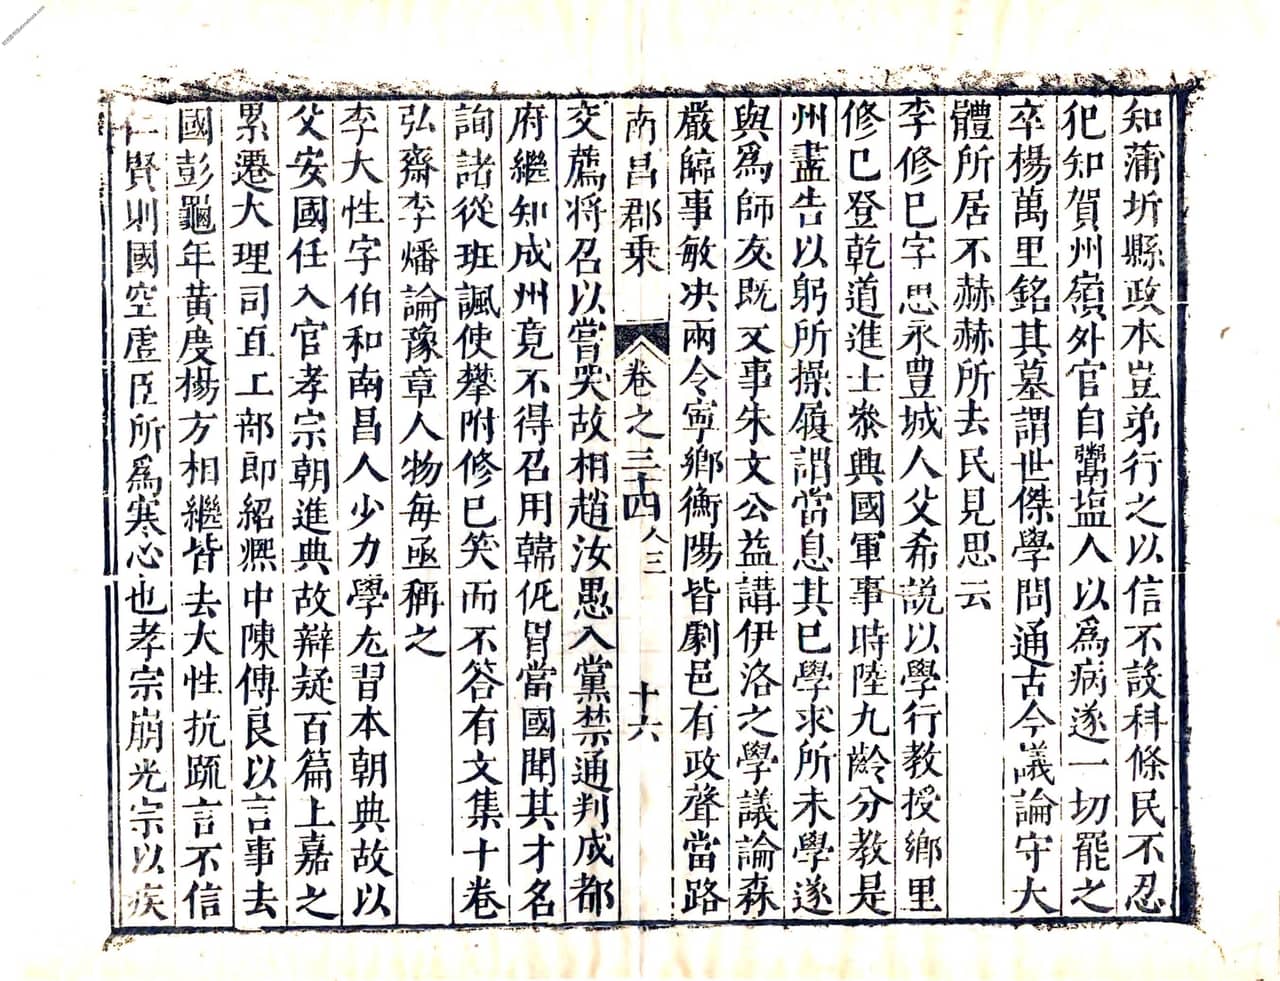 知蒲圻縣政本豈弟行之以信不設科條民不忍
犯知賀州嶺外官自鬻塩人以爲病遂一切罷之
卒楊萬里銘其墓謂世傑學問通古今議論守大
體所居不赫赫所去民見思云
李修巳字思永豊城人父希説以學行教授鄉里
修巳登乾道進士叅興國軍事時陸九齡分教是
州盡告以躬所操履謂當息其巳學求所未學遂
與爲師友既又事朱文公益講伊洛之學議論森
嚴臨事敏决兩令寧鄉衡陽皆劇邑有政聲當路
南昌郡乗 卷之三十四 人三 十六
交薦将召以嘗哭故相趙汝愚入黨禁通判成都
府繼知成州竟不得召用韓侂冑當國聞其才名
詢諸從班諷使攀附修巳笑而不答有文集十卷
弘齋李燔論豫章人物每亟稱之
李大性字伯和南昌人少力學尤習本朝典故以
父安國任入官孝宗朝進典故辯疑百篇上嘉之
累遷大理司直工部郎紹熈中陳傅良以言事去
國彭龜年黄度楊方相繼皆去大性抗疏言不信
仁賢則國空虛臣所爲寒心也孝宗崩光宗以疾